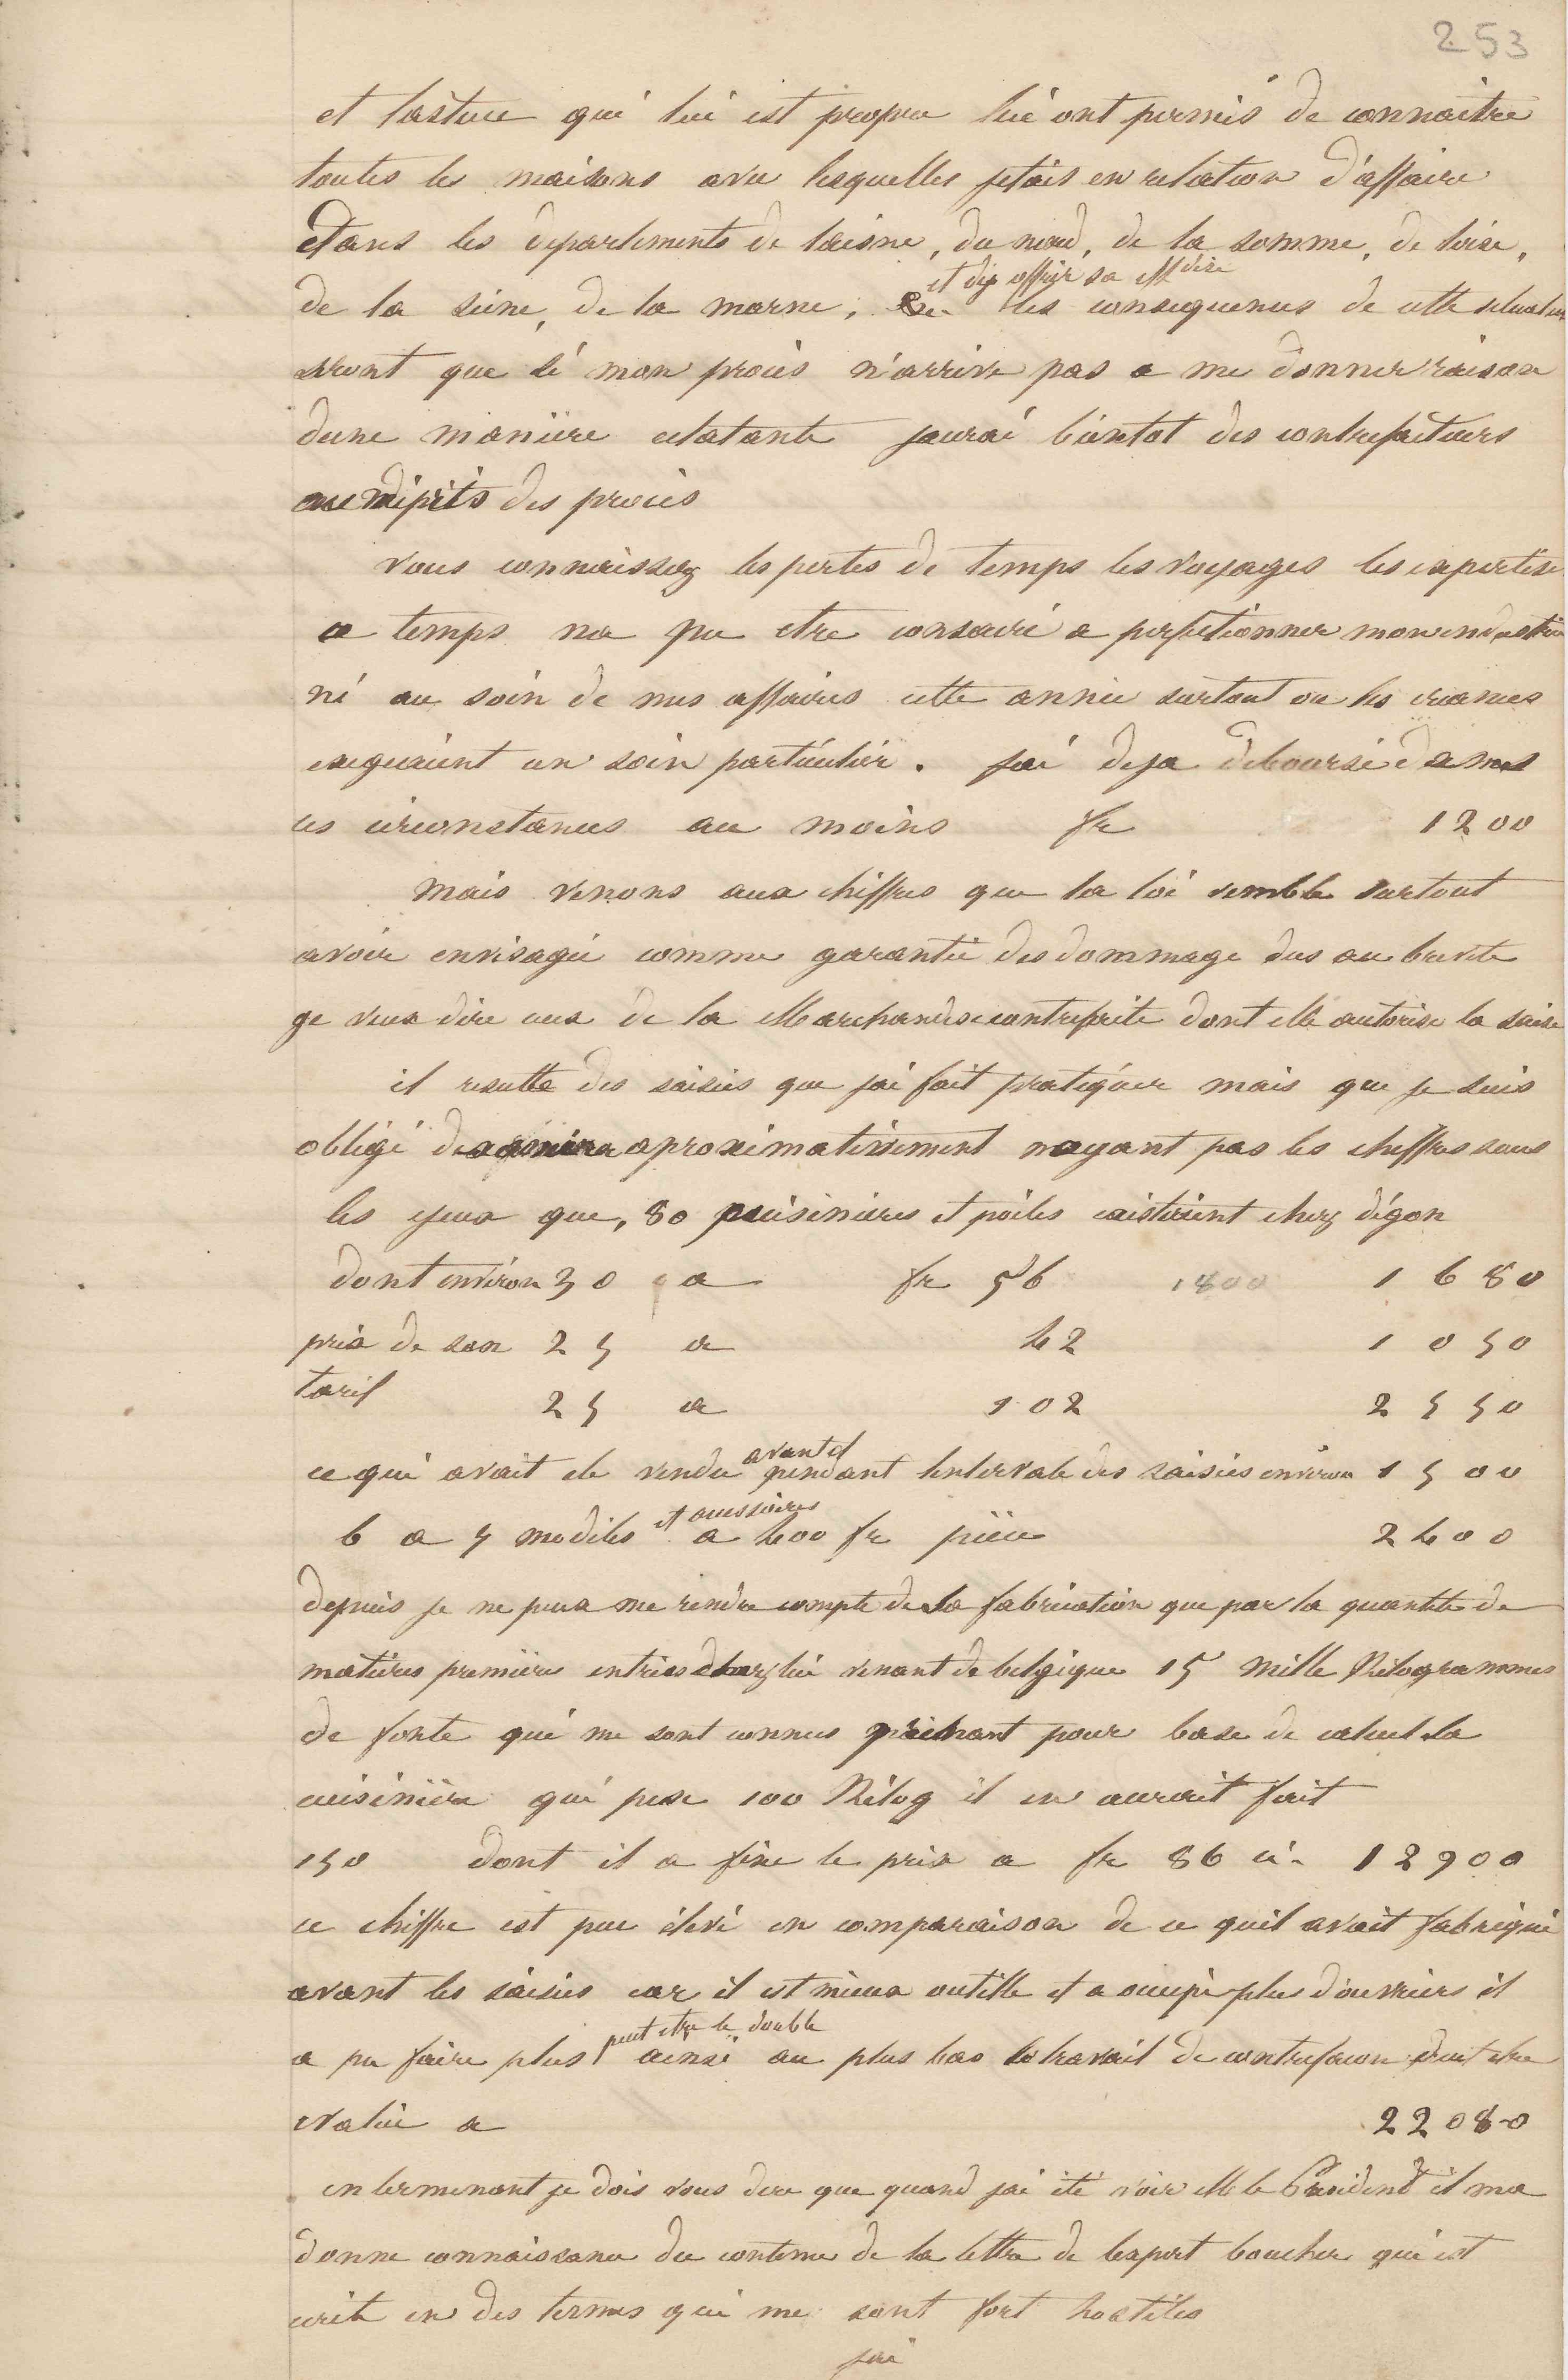 253
et lastuce qui lui est propre lui ont permis de connaitre
toutes les maisons avec lesquelles jetais en relation d'affaire
dans les departements de laisne, du nord, de la somme, de loise,
et deja offrir sa Mdise
de la seine, de la marne, les consequences de cette situation
seront que si mon procès n'arrive pas a me donner raison
dune manière eclatante jaurai bientot des contrefacteurs
au mépris des procès
vous connaissez les pertes de temps les voyages les expertises
ce temps na pu etre consacré a perfectionner mon industrie
ni au soin de mes affaires cette année surtout ou les créances
exigeaient un soin particulier. jai deja déboursé dans
ces circonstances au moins fr 1200
mais venons aux chiffres que la loi semble surtout
avoir envisagée comme garantie des dommage dus au breveté
je veux dire ceux de la Marchandise contrefaite dont elle autorise la saisie
il resulte des saisies que jai fait pratiquer mais que je suis
obligé aproximativement nayant pas les chiffres sous
les yeux que, 80 cuisinières et poêles existaient chez dégon
dont environ 30 a fr 56 1800 1680
prix de son 25 a 42 1050
tarif 25 a 102 2550
avant et
ce qui avait ete vendu pendant lintervale des saisies environ 1500
et accessoires
6 a 7 modèles a 400 fr pièce 2400
depuis je ne peux me rendre compte de sa fabrication que par la quantité de
matières premières entrées chez lui venant de belgique 15 mille Kilogrammes
de fonte qui me sont connus prenant pour base de calcul la
cuisinière qui pese 100 Kilog il en aurait fait
150 dont il a fixé le prix a fr 86 ci- 12900
ce chiffre est peu élevé en comparaison de ce quil avait fabriqué
avant les saisies car il est mieux outillé et a occupé plus d'ouvriers il
peut etre le double
a pu faire plus ainsi au plus bas le travail de contrefacon doit etre
evalué a 22080
en terminant je dois vous dire que quand jai été voir Mr le Président il ma
donné connaissance du contenu de la lettre de lexpert boucher qui est
ecrite en des termes qui me sont fort hostiles
jai